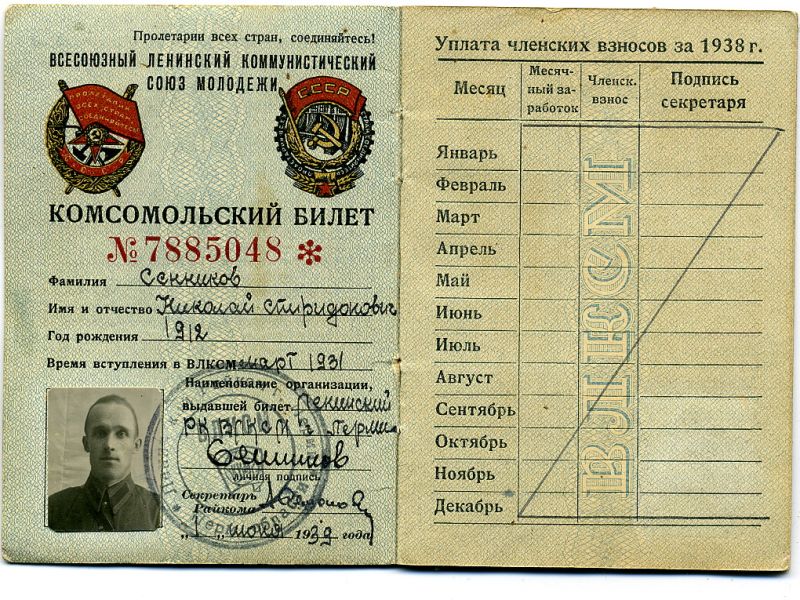 Пролетарии всех стран, соединяйтесь!
ВСЕСОЮЗНЫЙ ЛЕНИНСКИЙ КОММУНИСТИЧЕСКИЙ
СОЮЗ МОЛОДЕЖИ
ПРОЛЕТАРИИ
ВСЕХ СТРАН
СОЕДИНЯЙТЕСЬ
СССР
КОМСОМОЛЬСКИЙ БИЛЕТ
№ 7885048 *
Фамилия Сенников
Имя и отчество Николай Спиридонович
Год рождения 1912
Время вступления в ВЛКСМ март 1931
Наименование организации,
выдавшей билет Ленинский
РК ВЛКСМ г Перми
Сенников
личная подпись
Секретарь
Райкома
1939 года
Уплата членских взносов за 1938 г.
Месяц
Месяч-
ный за-
работок
Членск.
взнос
Подпись
секретаря
Январь
Февраль
Март
Апрель
Май
Июнь
Июль
Август
Сентябрь
Октябрь
Ноябрь
Декабрь
ВЛКСМ